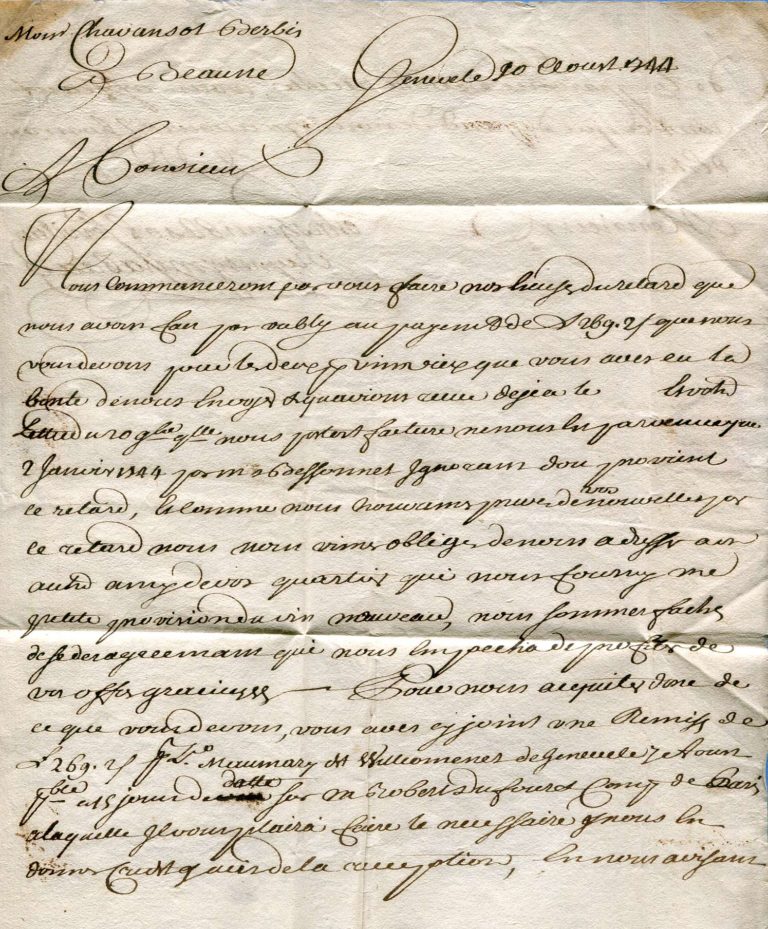 Mons.r Chavansot Berbis
à Beaune
Geneve le 10 Aoust 1744
Monsieur
Nous Commancerons par vous faire nos du retard que
nous avons par oubly au payem.t de £ 269.2/ que nous
vous devons pour les deux que vous aves eu la
bonté de nous Envoyer &
Lettre du 10 9bre nous facture ne nous Est parvenue que
2 Janvier 1744 par m.r Bessonnet Ignorans dou provient
ce retard, & Comme nous de vos nouvelles par
ce retard nous nous vimes obliges de nous adresser a un
autre amy de vos quartier qui nous fourny une
petite provision du vin nouveau, nous sommes fachés
de se desagreemant qui nous Empecha de profiter de
vos offres gracieuses — Pour nous acquiter donc de
ce que vous devons, vous aves cy joint une Remise de
£ 269.2/ Meumary & Willomenet de Geneve le 7e Aoust
a 15 jours de datte sur m.r Robert Dufour & Comp. de Paris
a laquelle Il vous plaira faire le necessaire & nous En
donner Credit de la reception, En nous avisant